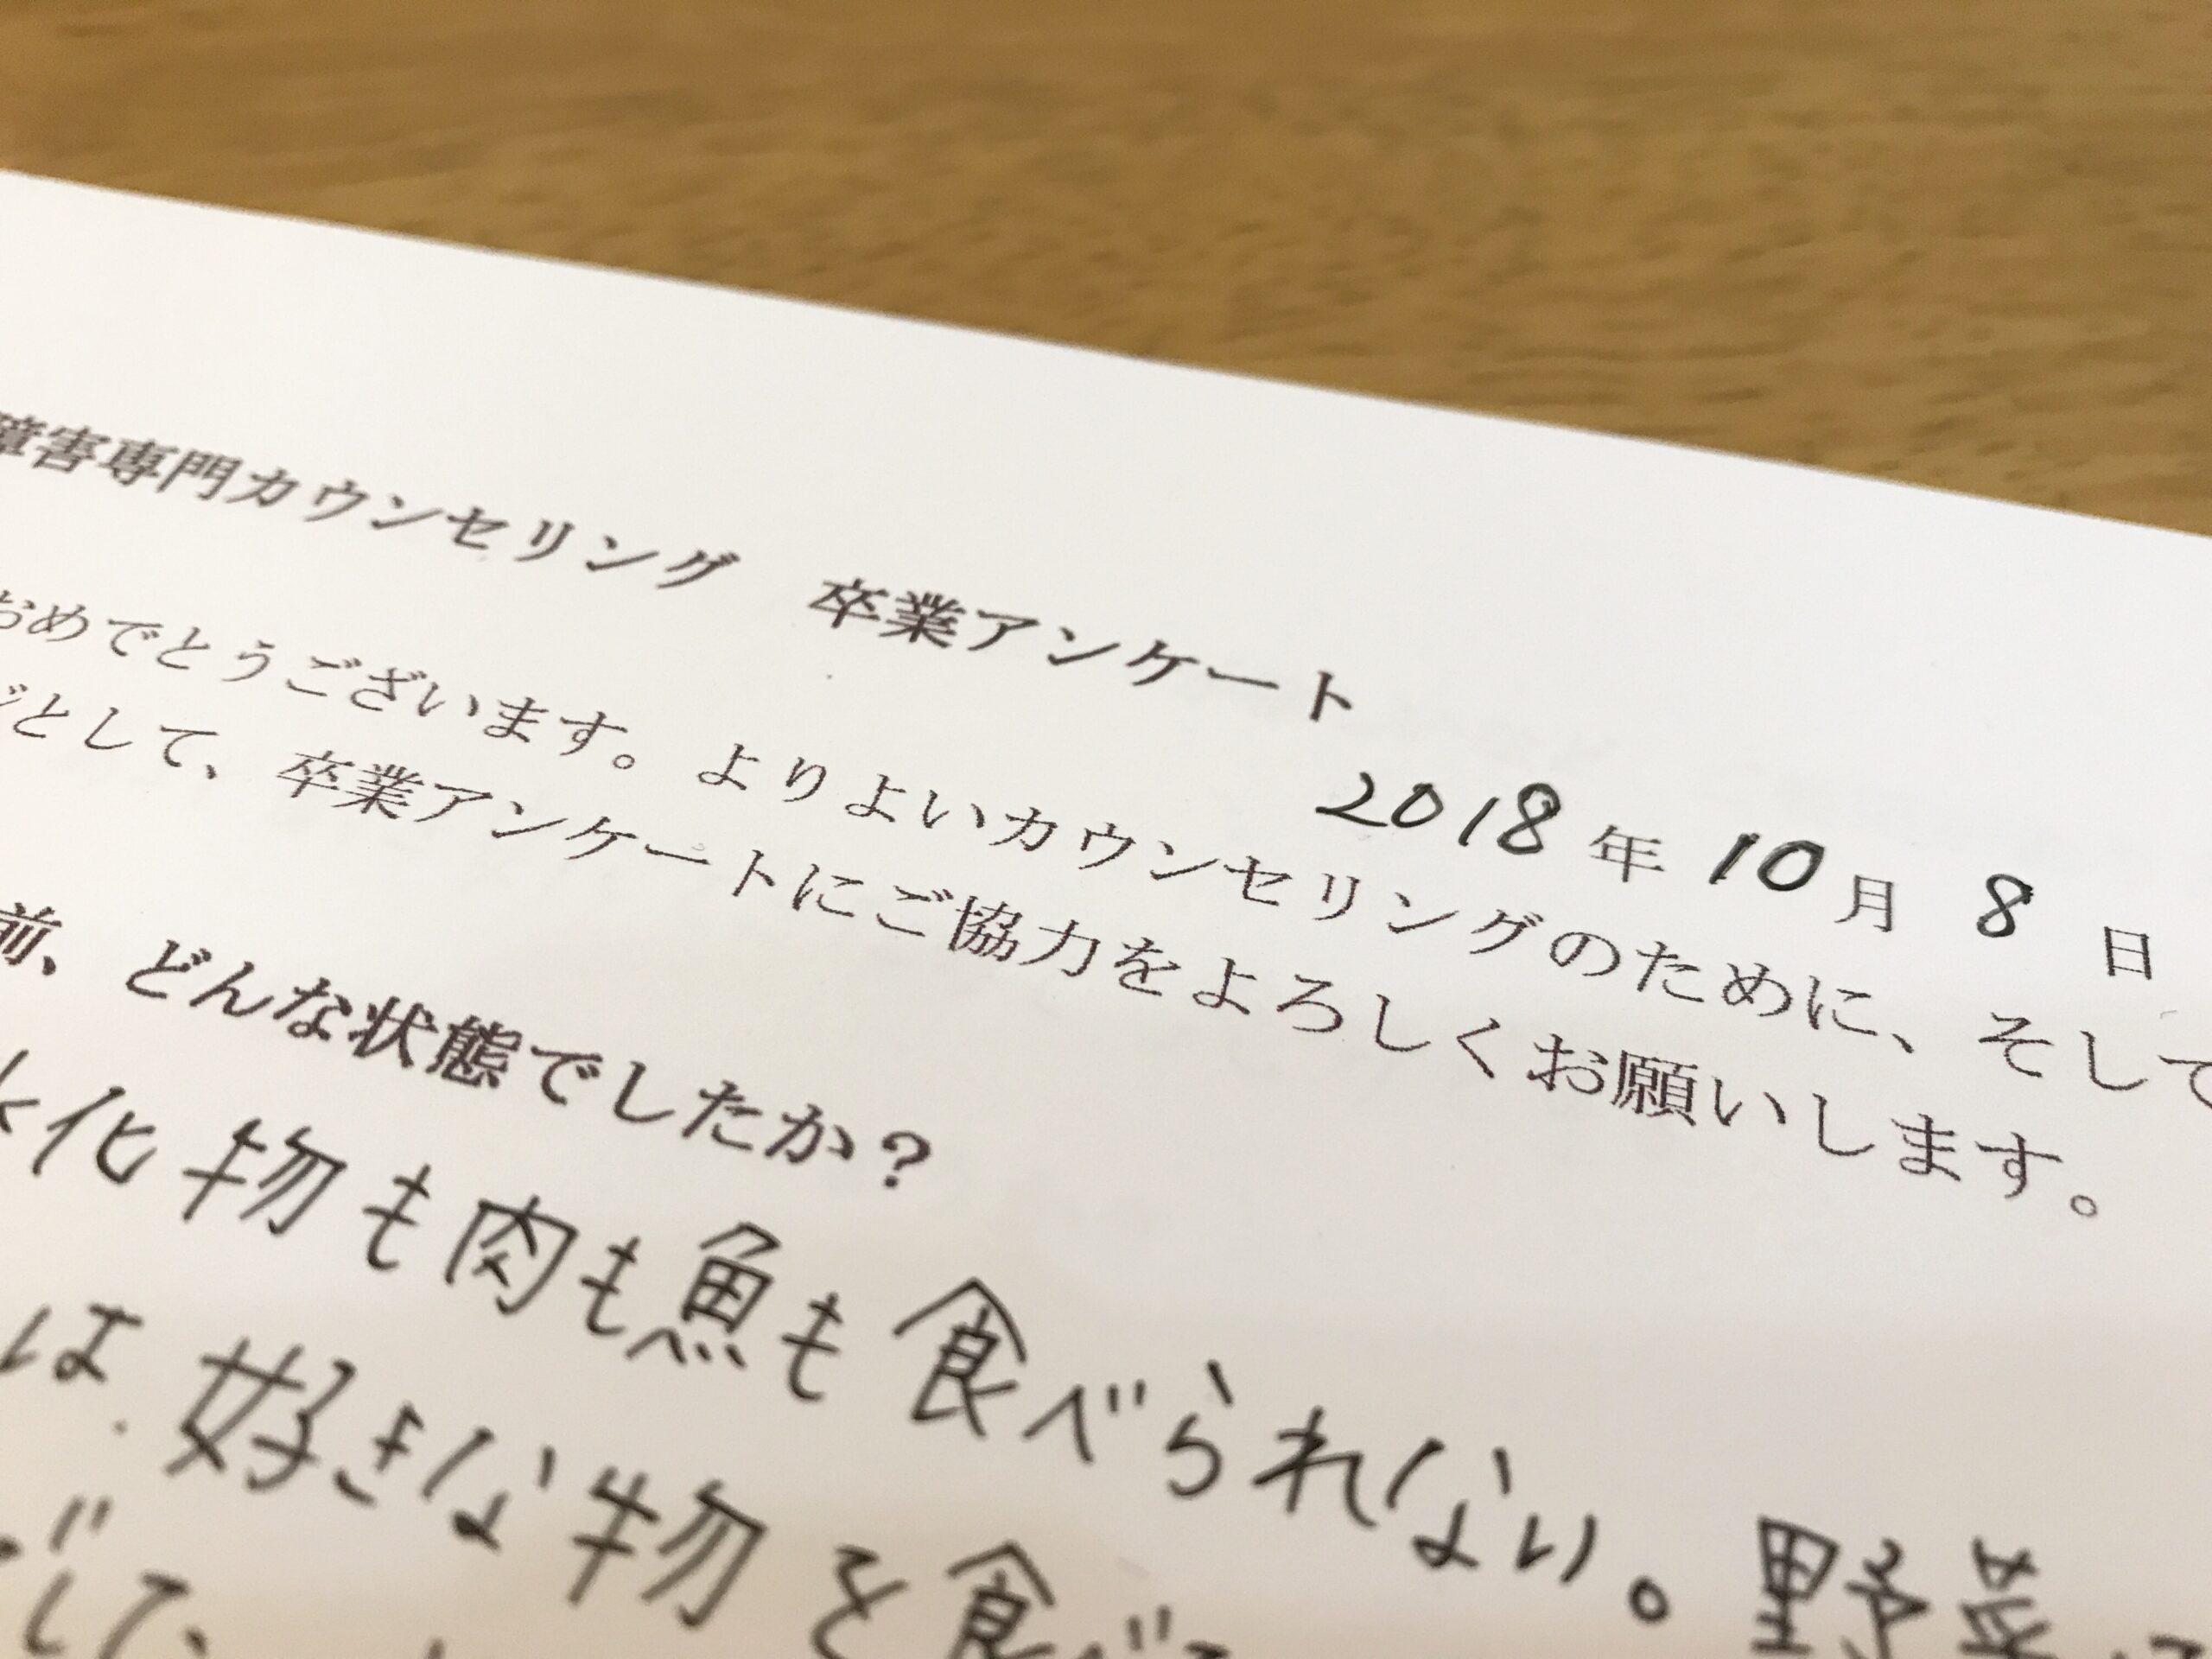 障害専門カウンセリング　卒業アンケート
2018年10月8日
おめでとうございます。よりよいカウンセリングのために、そして
として、卒業アンケートにご協力をよろしくお願いします。
前、どんな状態でしたか？
水化物も肉も魚も食べられない。野菜
は好きな物を食べ
して、